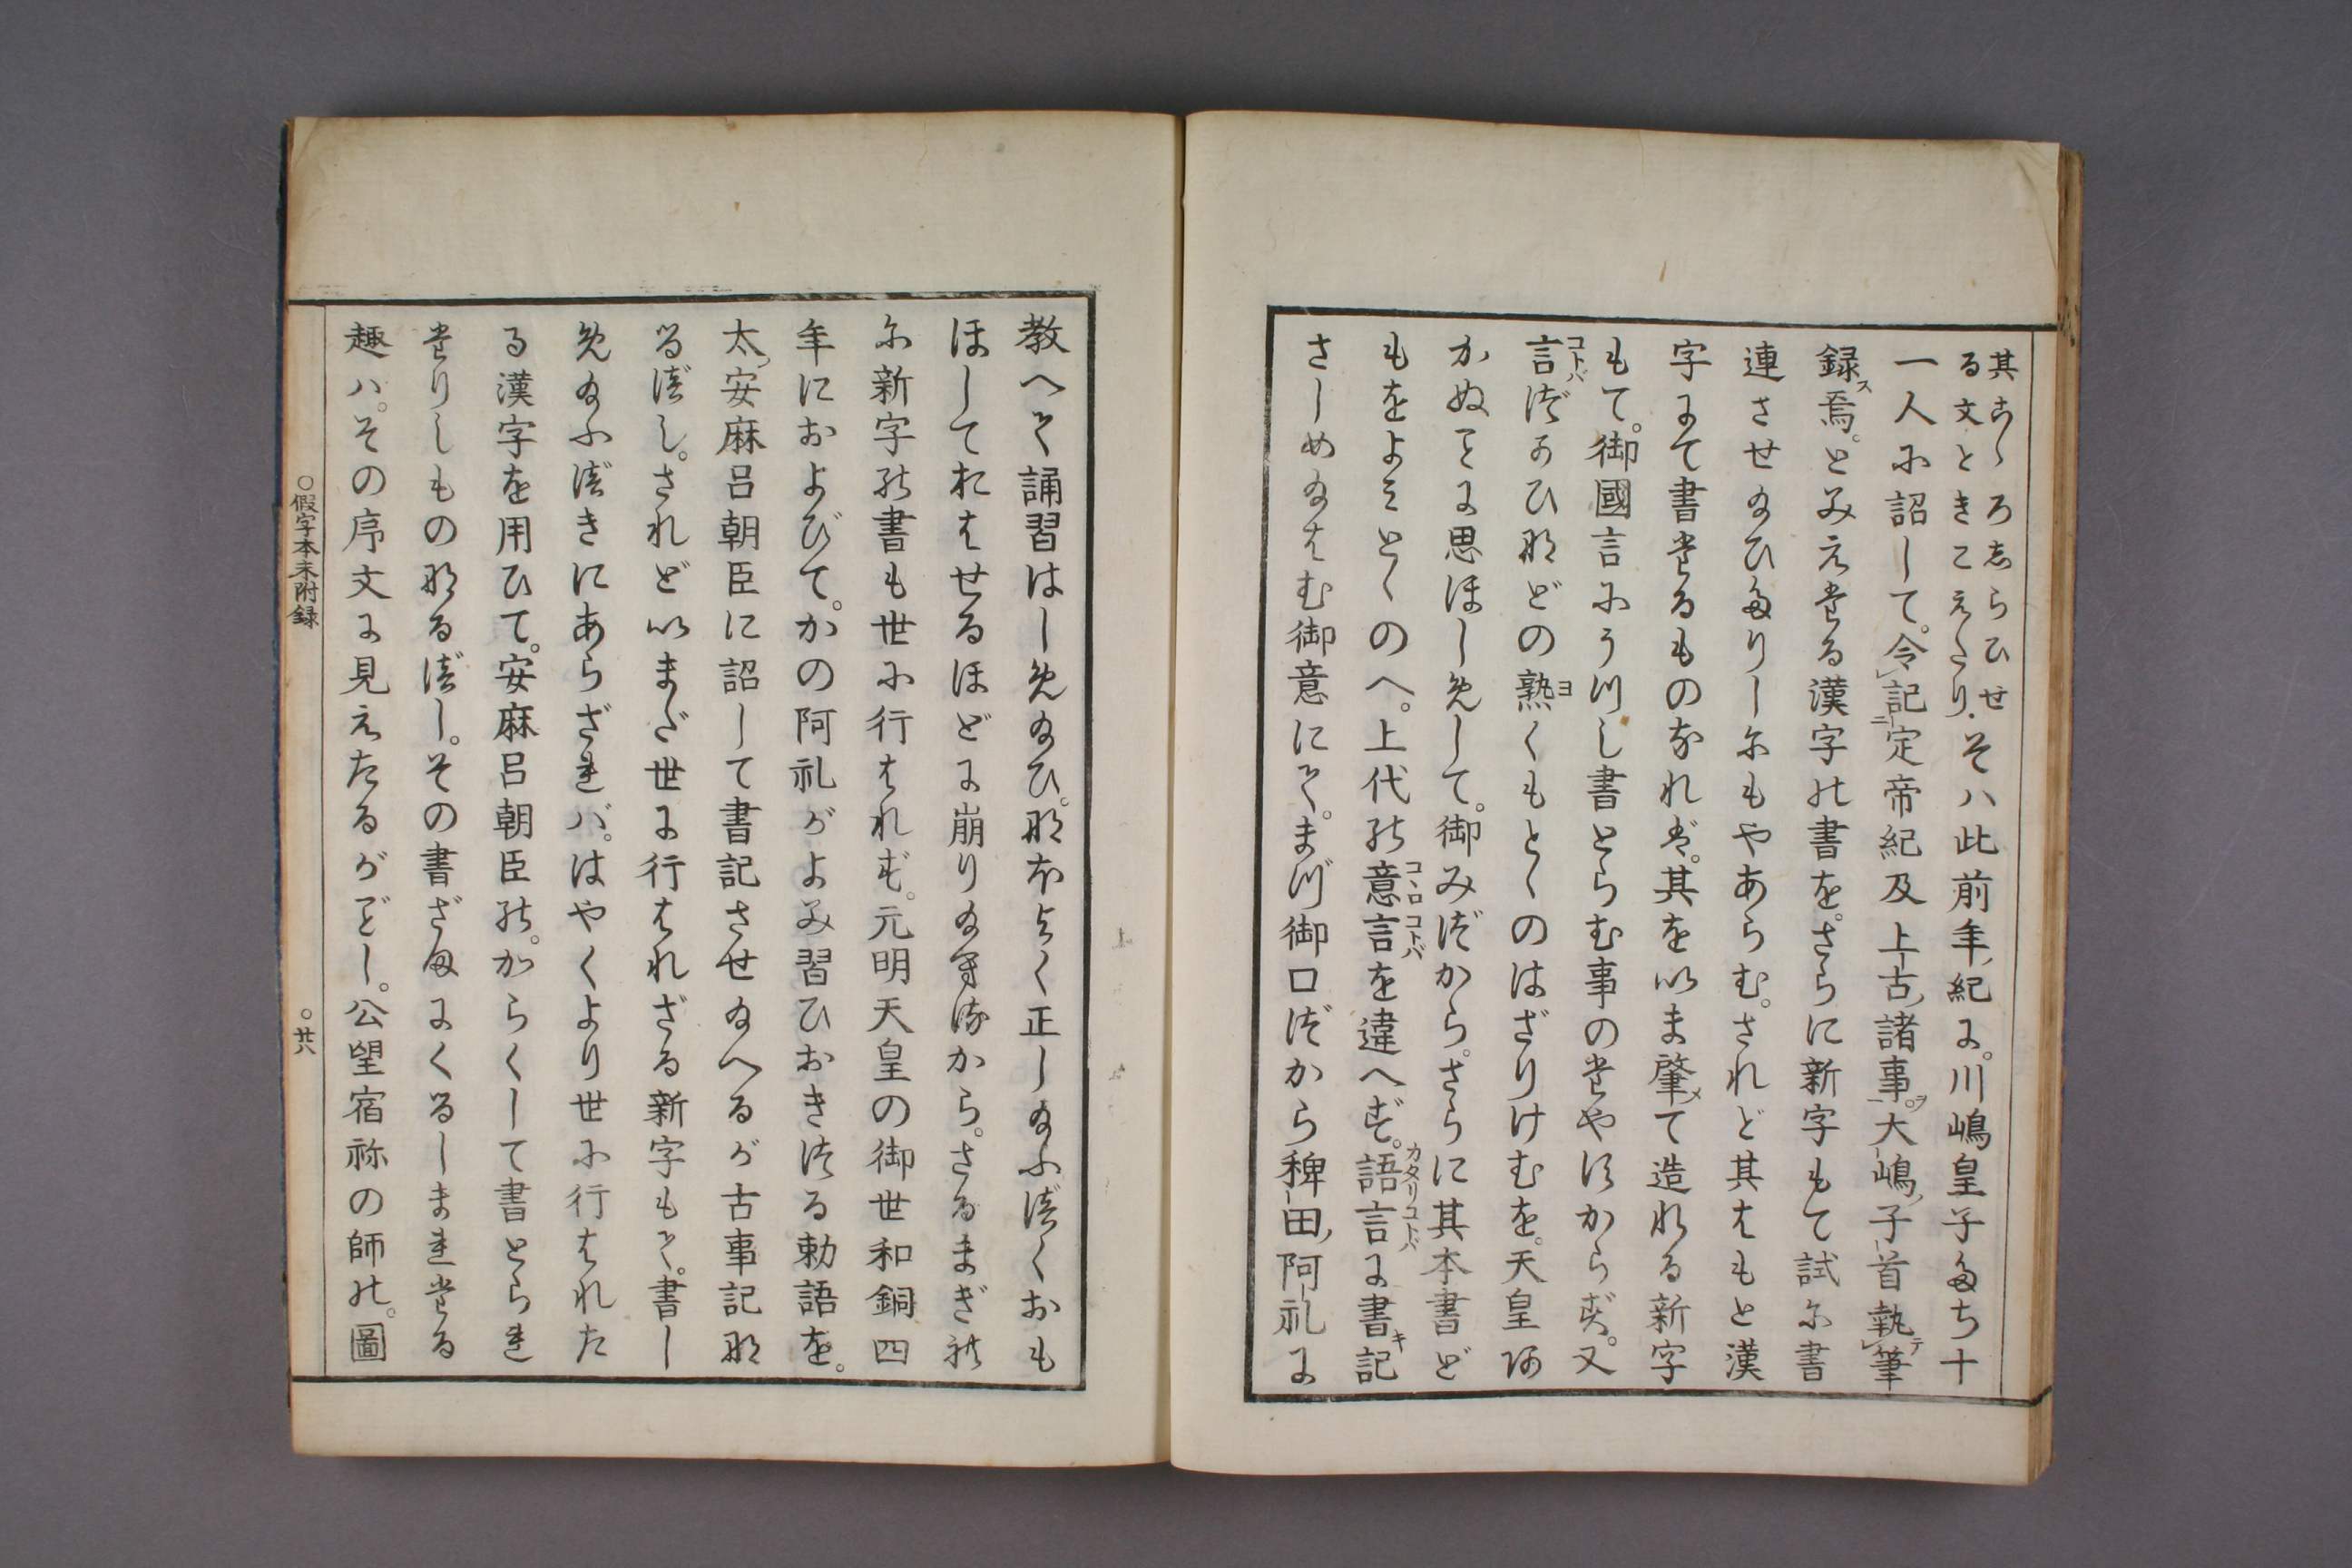 其こゝろしらひせ
る文ときこえたり.そハ此前年紀に。川嶋皇子たち十
一人に詔して。令記定帝紀及上古諸事。大嶋子首執筆
録焉。とみえたる漢字の書を。さらに新字もて試に書
連させ給ひたりしにもやあらむ。されど其はもと漢
字にて書たるものなれば。其を以ま肇メて造れる新字
もて。御國言にうつし書とらむ事のたやすからず。又
言コトバづかひなどの熟ヨくもとゝのはざりけむを。天皇あ
かぬことに思ほしめして。御みづから。さらに其本書ど
もをよみとゝのへ。上代の意コヽロ言コトバを違へず。語言カタリコトバに書キ記
さしめ給はむ御意にて。まづ御口づから稗田阿礼に
教へて誦習はしめ給ひ。なほよく正し給ふべくおも
ほしておはせるほどに崩り給ひぬるから。さるまぎれ
に新字の書も世に行はれず。元明天皇の御世和銅四
年におよびて。かの阿礼がよみ習ひおきつる勅語を。
太安麻呂朝臣に詔して書記させ給へるが古事記な
るべし。されど以まだ世に行はれざる新字もて。書し
め給ふべきにあらざれバ。はやくより世に行はれた
る漢字を用ひて。安麻呂朝臣の。からくして書とられ
たりしものなるべし。その書ざまにくるしまれたる
趣ハ。その序文に見えたるがごとし。公望宿祢の師の。圖
○假字本末附録
○廿八